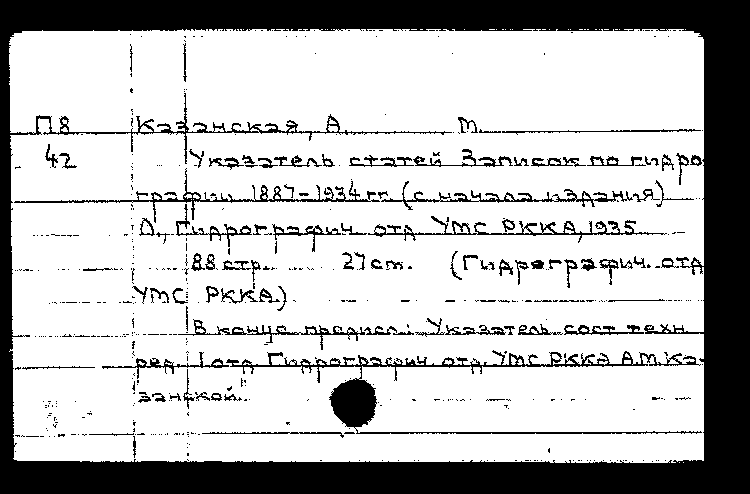 П8 Казанская, А. М.
42 Указатель статей Записок по гидро-
графии 1887-1934 гг. (с начала издания)
Л., Гидрографич. отд УМС РККА, 1935
88 стр. 27 cm. (Гидрографич. отд
УМС РККА.)
В конце предисл.: Указатель сост техн
ред. 1 отд Гидрографич. отд. УМС РККА А.М. Ка-
занской"